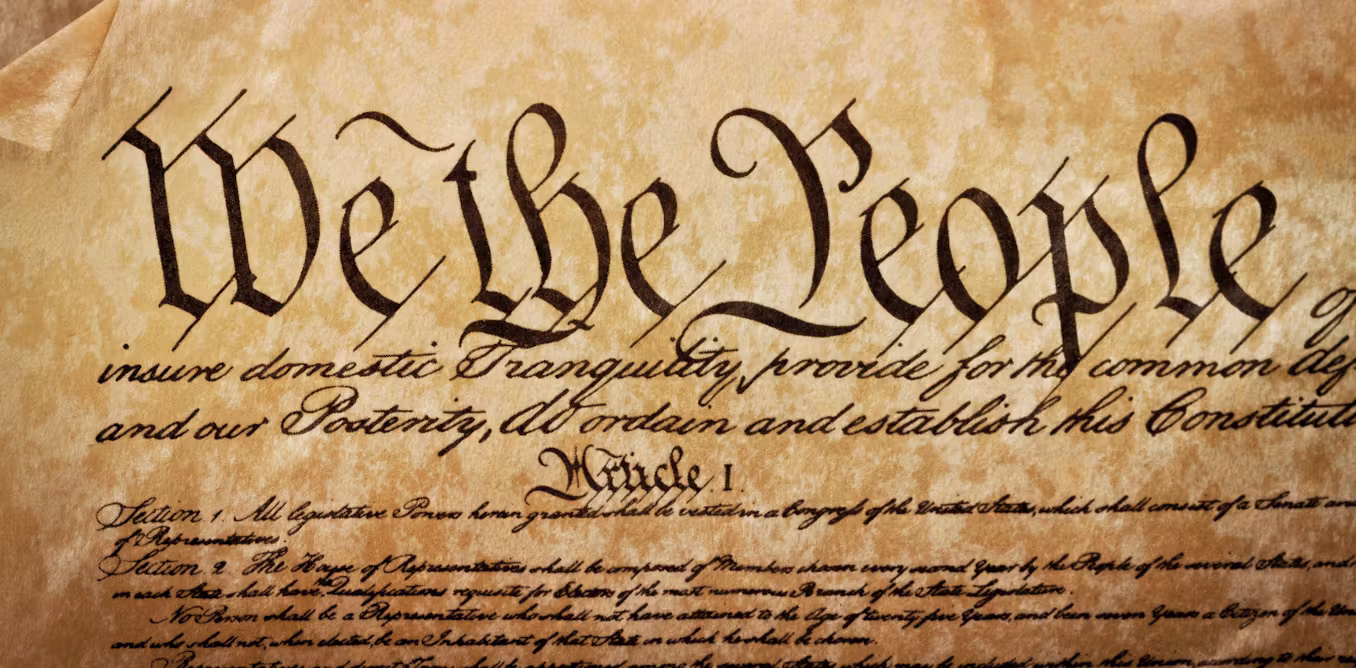 We the People of
insure domestic Tranquility, provide for the common def
and our Posterity, do ordain and establish this Constitut
Article I.
Section 1. All legislative Powers herein granted shall be vested in a Congress of the United States, which shall consist of a Senate and
of Representatives.
Section 2. The House of Representatives shall be composed of Members chosen every second Year by the People of the several States, and
in each State shall have the Qualifications requisite for Electors of the most numerous Branch of the State Legislature.
No Person shall be a Representative who shall not have attained to the Age of twenty five Years, and been seven Years a Citizen of the Un
and who shall not, when elected, be an Inhabitant of that State in which he shall be chosen.